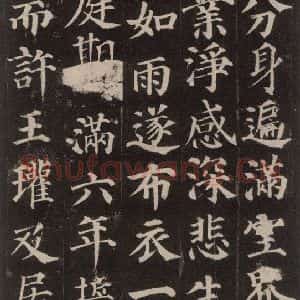 分身遍滿空界
業淨感深悲生
如雨遂布衣一
庭期滿六年
而許王瓘及居
Shufawang.Cn